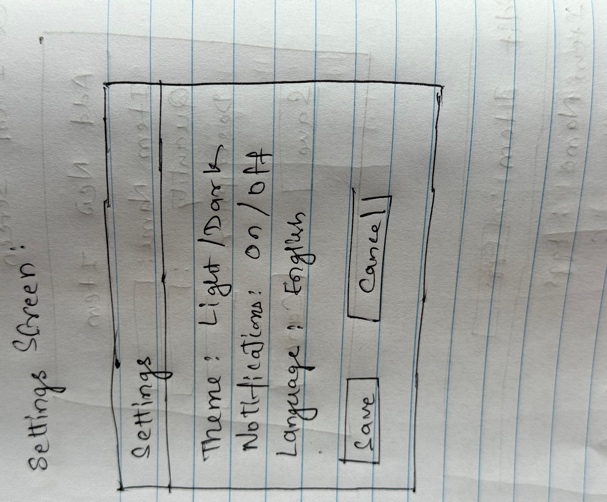 Settings Screen:
Settings
Theme: Light/Dark
Notifications: on/off
Language: English
Save Cancell